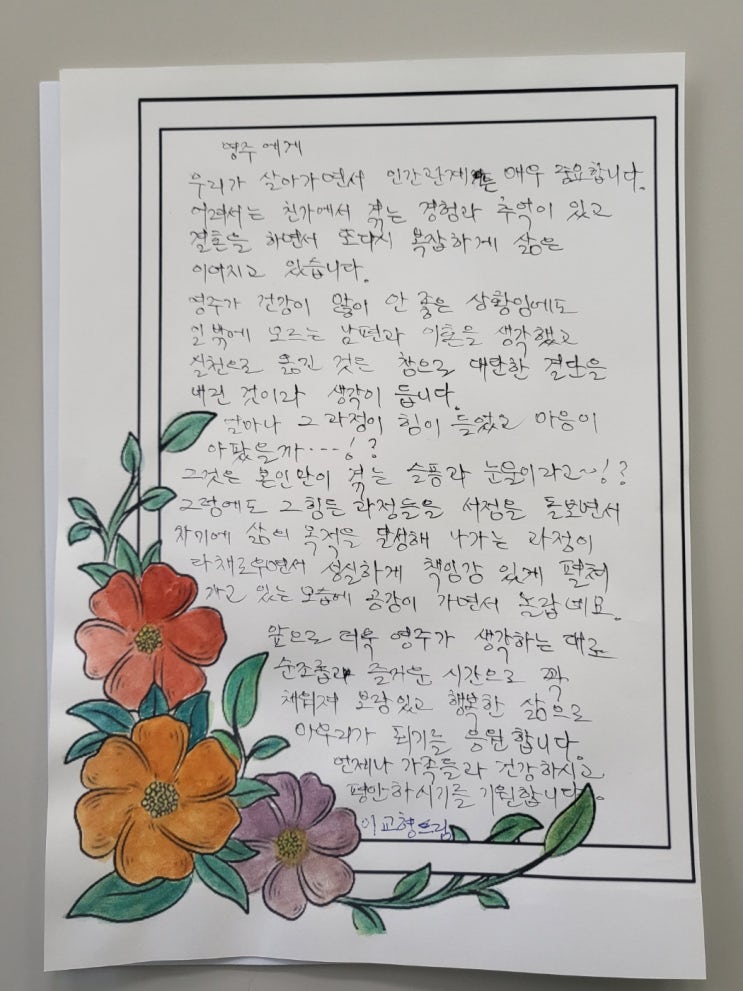 영주에게
우리가 살아가면서 인간관계는 매우 중요합니다.
어려서는 친가에서 겪는 경험과 추억이 있고
결혼을 하면서 또다시 복잡하게 삶은
이어지고 있습니다.
영주가 건강이 많이 안 좋은 상황임에도
일밖에 모르는 남편과 이혼을 생각했고
실천으로 옮긴 것은 참으로 대단한 결단을
내린 것이라 생각이 듭니다.
얼마나 그 과정이 힘이 들었고 마음이
아팠을까····!?
그것은 본인만이 겪는 슬픔과 눈물이라고~!?
그럼에도 그 힘든 과정들을 서점을 돌보면서
차기에 삶의 목적을 달성해 나가는 과정이
다채로우면서 성실하게 책임감 있게 펼쳐
가고 있는 모습에 공감이 가면서 놀랍네요.
앞으로 더욱 영주가 생각하는 대로
순조롭과 즐거운 시간으로 꽉
채워져 보람있고 행복한 삶으로
마무리가 되기를 응원합니다.
언제나 가족들과 건강하시고
평안하시기를 기원합니다.
이교형드림